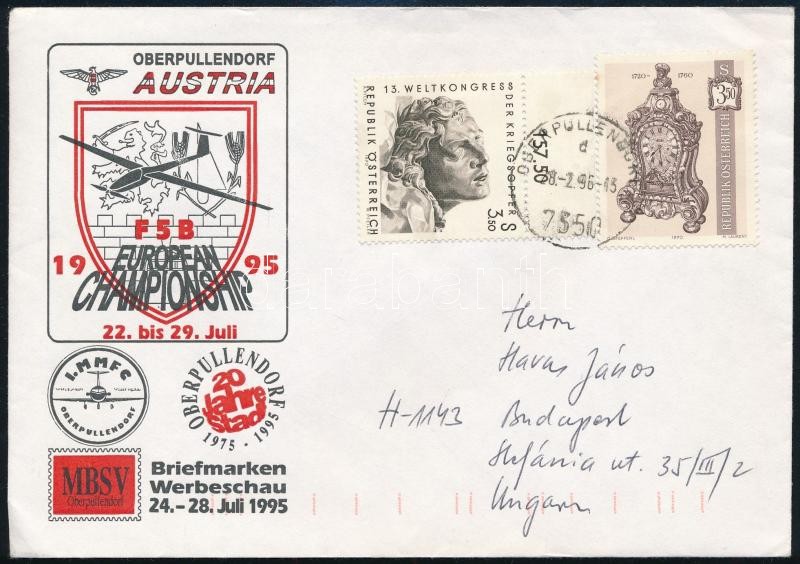 OBERPULLENDORF
AUSTRIA
F5B
EUROPEAN
1995
CHAMPIONSHIP
22. bis 29. Juli
I.MMFC
OBERPULLENDORF
OBERPULLENDORF
20
Jahre
Stadt
1975 - 1995
MBSV
Oberpullendorf
Briefmarken
Werbeschau
24.-28. Juli 1995
13. WELTKONGRESS
DER KRIEGSOPFER
REPUBLIK ÖSTERREICH
S
3,50
S 7.50
OBERPULLENDORF
d
-2.96-13
7350
1720 - 1760
S
3,50
REPUBLIK ÖSTERREICH
1970
darabanth
Herrn
Havas János
H-1143 Budapest
Stefánia ut. 35/III/2
Ungarn